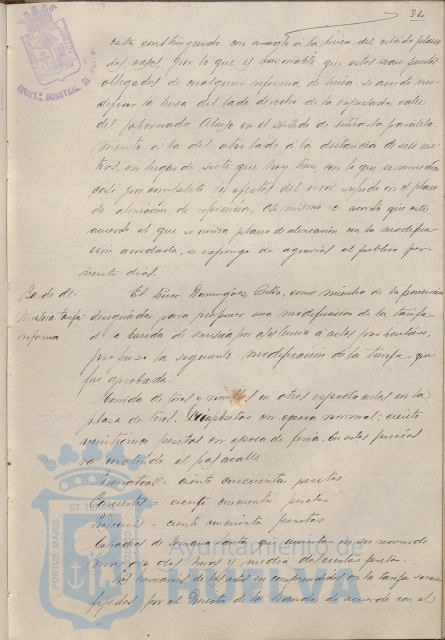 34
esta construyendo con arreglo á la linea del citado plano
dos casas, por lo que es razonable que estos sean puntos
obligados de cualquier reforma de linea, se acordó mo-
dificar la linea del lado derecho de la expresada calle
del Gobernador Alonso en el sentido de situarla paralela
mente á la del otro lado á la distancia de seis me
tros, en lugar de siete que hoy tiene, con lo que se remedia
casi por completo los efectos del error sufrido en el plano
de alineación de referencia. Así mismo se acordó que este
acuerdo al que se unirá plano de alineación con la modifica
ción acordada, se exponga de agravios al público por
veinte dias.
Banda de
musica tarifa
reforma
El Señor Dominguez Ortiz, como miembro de la ponencia
designada para proponer una modificación de la tarifa
de la banda de musica por asistencia á actos particulares,
propuso la siguiente modificación de la tarifa, que
fué aprobada.
Corrida de toros y novillos u otros espectaculos en la
plaza de toros. pesetas en epoca normal; ciento
veinticinco pesetas en epoca de feria. En estos precios
va incluido el pasacalle
ciento cincuenta pesetas
Conciertos = ciento cincuenta pesetas
ciento cincuenta pesetas
Cofradias de Semana Santa que inviertan en su recorrido
mas de dos horas y media doscientas pesetas.
Los servicios de los actos no comprendidos en la tarifa seran
fijados por el Director de la Banda de acuerdo con el
Ayuntamiento de
HUELVA
PORTUS MARIS